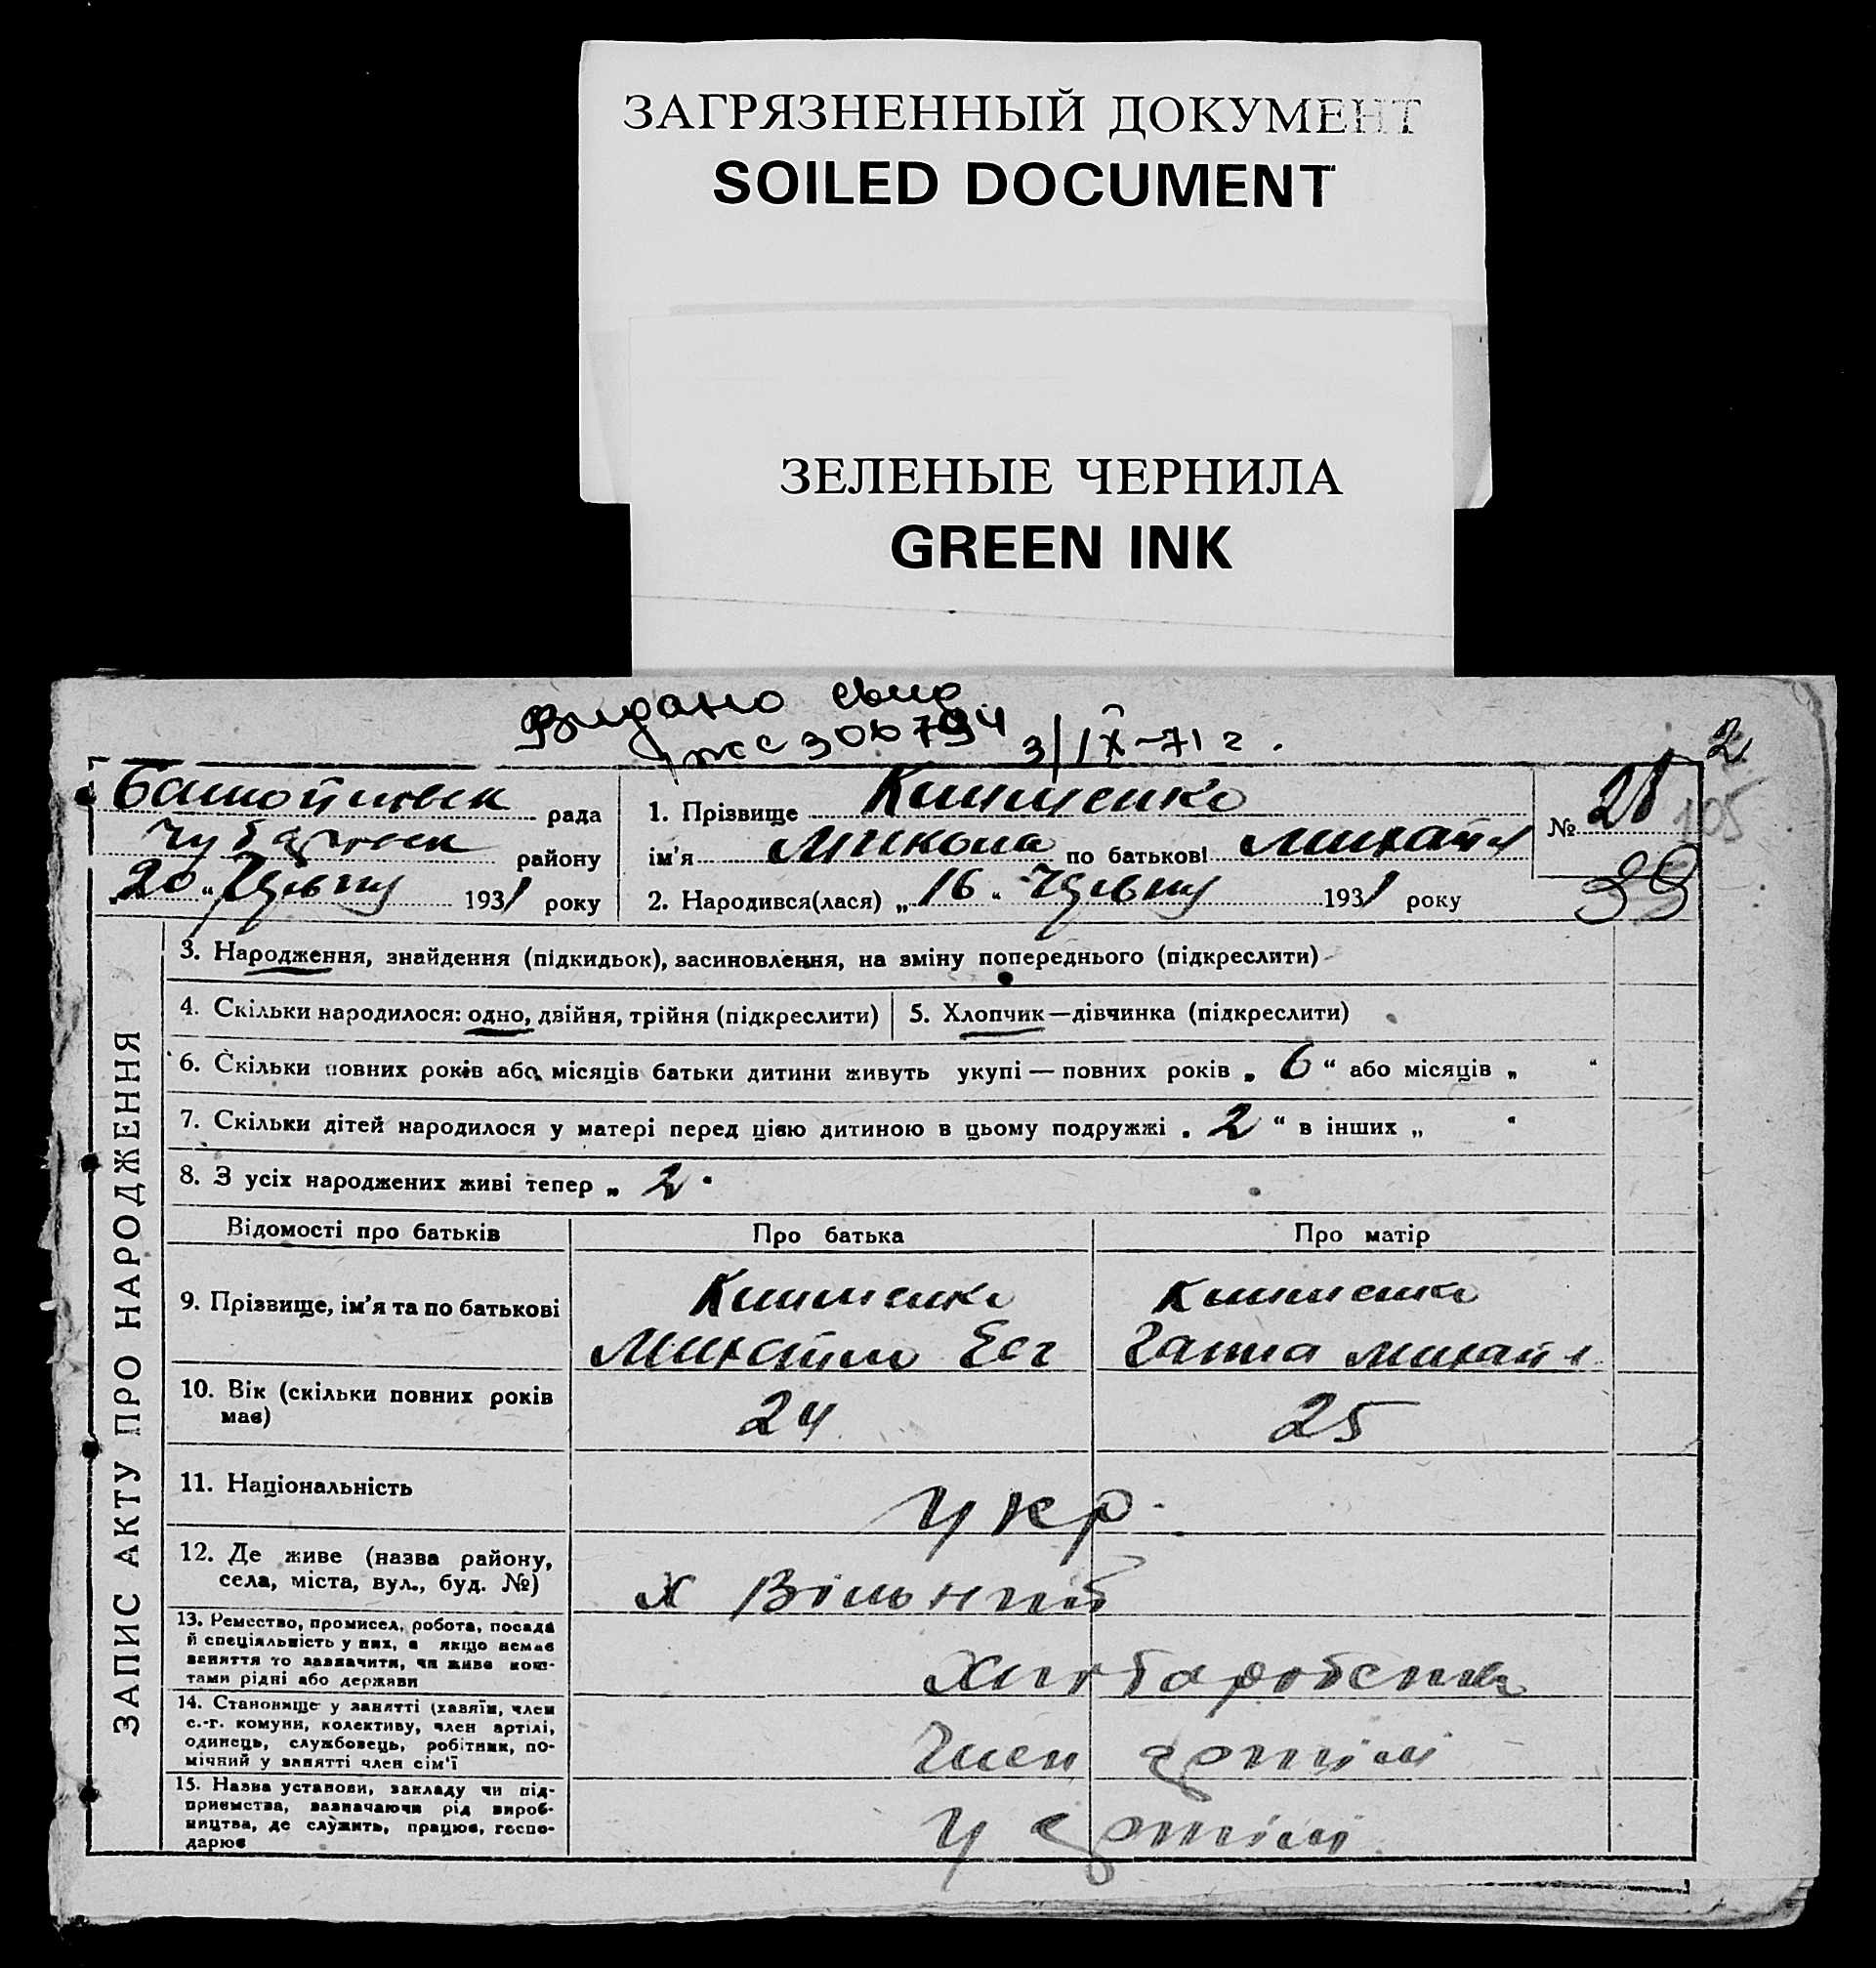 ЗАГРЯЗНЕННЫЙ ДОКУМЕНТ
SOILED DOCUMENT
ЗЕЛЕНЫЕ ЧЕРНИЛА
GREEN INK
Видано свид
3/IX-71 г.
2
рада
районy
20 " Червня 1931 року
1. Прізвище
ім'я Микола по батькові Михайл
2. Народився(лася) „ 16 " Червня 1931 року
№ 28
105
39
ЗАПИС АКТУ ПРО НАРОДЖЕННЯ
3. Народження, знайдення (підкидьок), засиновлення, на зміну попереднього (підкреслити)
4. Скільки народилося: одно, двійня, трійня (підкреслити)
5. Хлопчик—дівчинка (підкреслити)
6. Скільки повних років або місяців батьки дитини живуть укупі — повних років „ 6 " або місяців „ "
7. Скільки дітей народилося у матері перед цією дитиною в цьому подружжі „ 2 " в інших „ "
8. З усіх народжених живі тепер „ 2 "
Відомості про батьків
Про батька
Про матір
9. Прізвище, ім'я та по батькові
Михайло
Ганна Михайл
10. Вік (скільки повних років має)
24
25
11. Національність
укр.
12. Де живе (назва району,
села, міста, вул., буд. №)
х Вільний
13. Ремество, промисел, робота, посада
й спеціяльність у них, а якщо немає
заняття то зазначити, чи живе кош-
тами рідні або держави
14. Становище у занятті (хазяїн, член
с.-г. комуни, колективу, член артілі,
одинець, службовець, робітник, по-
мічний у занятті член сім'ї
Член артілі
15. Назва установи, закладу чи під-
приємства, зазначаючи рід вироб-
ництва, де служить, працює, госпо-
дарює
у артілі